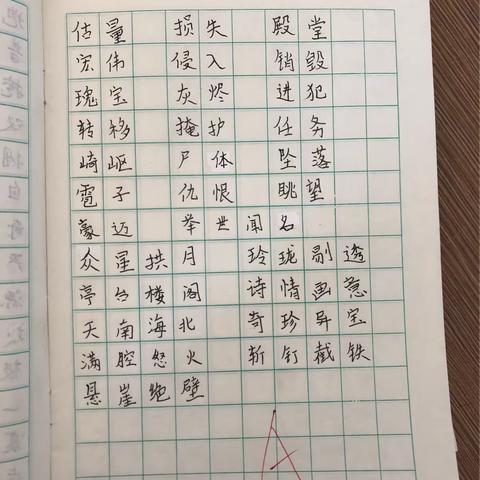 估量 损失 殿堂
宏伟 侵入 销毁
瑰宝 灰烬 进犯
转移 掩护 任务
崎岖 尸体 坠落
雹子 仇恨 眺望
豪迈 举世闻名
众星拱月 玲珑剔透
亭台楼阁 诗情画意
天南海北 奇珍异宝
满腔怒火 斩钉截铁
悬崖绝壁
A